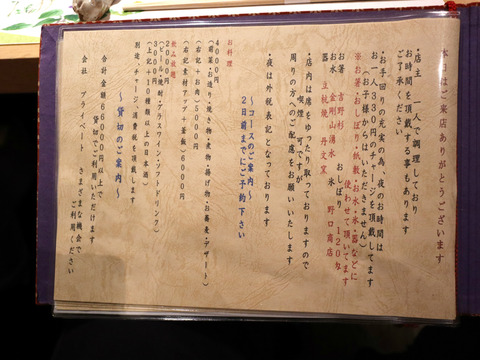 本日はご来店ありがとうございます
・店主、一人で調理しており
お時間を頂戴する事もあります
ご了承ください
・お手回りの充実の為、夜のお時間は
お一人330円のチャージを頂戴してます
(お子様からはいただきません)
※お箸・おしぼり・紙敷・お水・氷・器などに
使わせて頂いてます
お箸 吉野杉 おしぼり 120匁
お水 金剛山湧水 氷 野口商店
器 立杭焼 丹文窯
・店内は席をゆったり取っておりますので
喫煙 可ですが
周りの方へのご配慮をお願いいたします
・夜は外税表記となっております
～コースのご案内～
2日前までにご予約下さい
お料理
4000円
(前菜・お造り・焼き物・煮物・揚げ物・お蕎麦・デザート)
(右記+お肉)5000円
(右記素材アップ+釜飯)6000円
飲み放題
2000円
(ビール・焼酎・グラスワイン・ソフトドリンク)
3000円
(上記+10種類以上の日本酒)
別途、チャージ、消費税を頂戴します
～貸切のご案内～
合計金額66000円以上で
貸切でご利用いただけます
会社 プライベート さまざまな機会で
ご利用ください